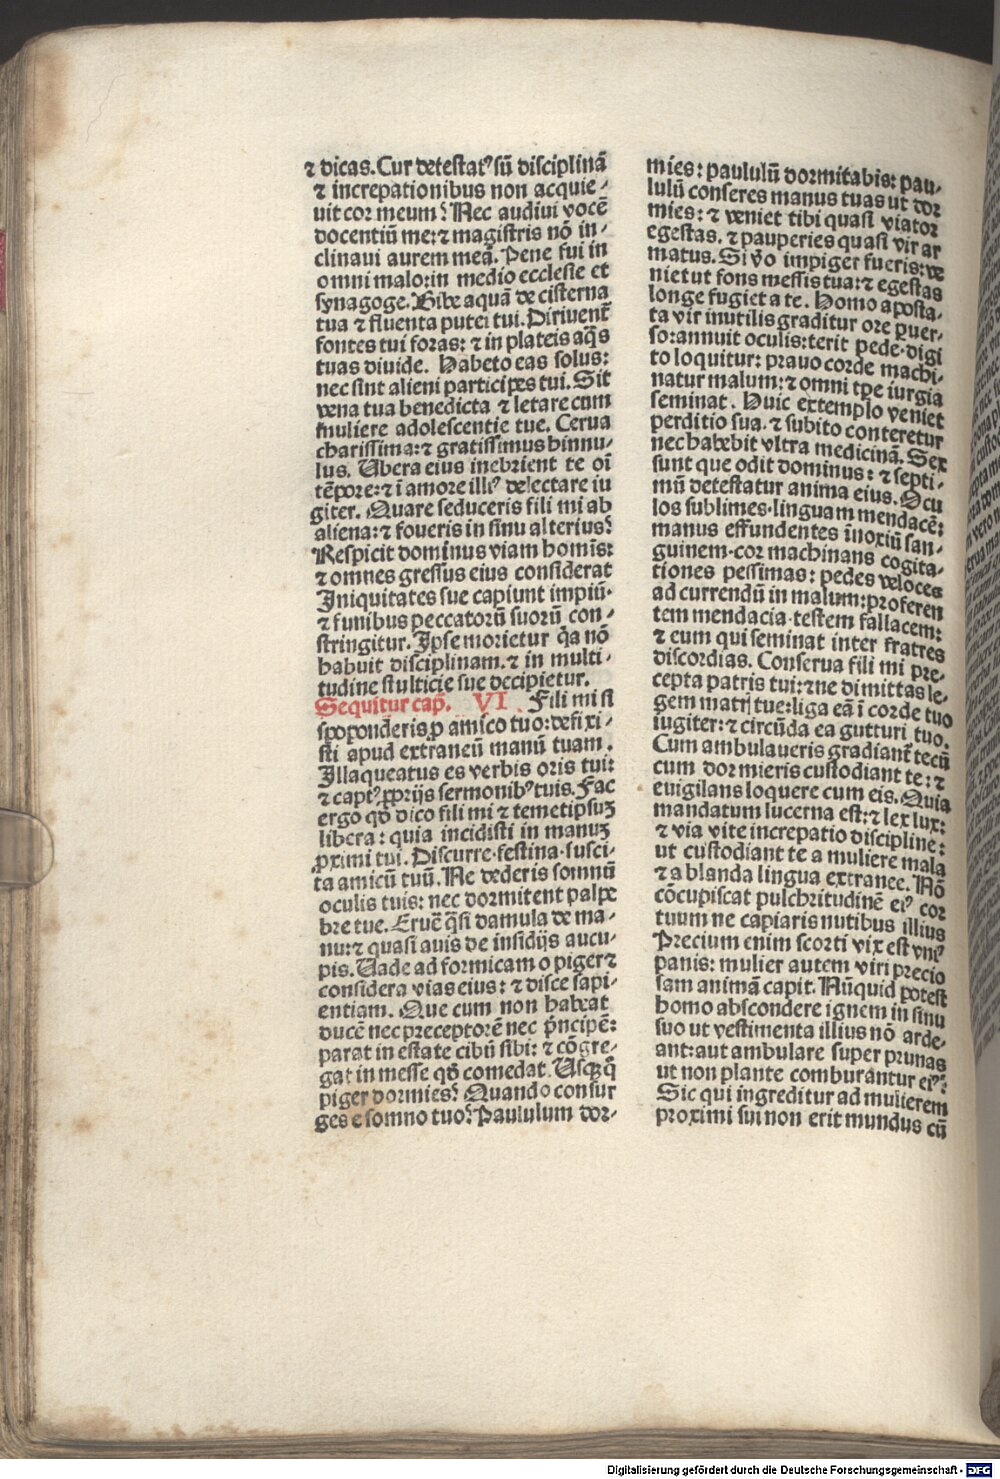 ⁊ dicas. Cur detestatꝰ sū disciplinā
⁊ increpationibus non acquie-
uit cor meum? Nec audiui vocē
docentiū me: ⁊ magistris nō in-
clinaui aurem meā. Pene fui in
omni malo: in medio ecclesie et
synagoge. Bibe aquā de cisterna
tua ⁊ fluenta putei tui. Diriuent̄
fontes tui foras: ⁊ in plateis aq̄s
tuas diuide. Habeto eas solus:
nec sint alieni participes tui. Sit
vena tua benedicta ⁊ letare cum
muliere adolescentie tue. Cerua
charissima: ⁊ gratissimus hinnu-
lus. Ubera eius inebrient te oī
tēpore: ⁊ ī amore illiꝰ delectare iu
giter. Quare seduceris fili mi ab
aliena: ⁊ foueris in sinu alterius?
Respicit dominus viam homīs:
⁊ omnes gressus eius considerat
Iniquitates sue capiunt impiū.
⁊ funibus peccatorū suorū con-
stringitur. Ipse morietur q̄a nō
habuit disciplinam. ⁊ in multi-
tudine stulticie sue decipietur.
Sequitur cap̄. VI Fili mi si
spoponderis ꝓ amico tuo: defixi-
sti apud extraneū manū tuam.
Illaqueatus es verbis oris tui:
⁊ captꝰ ꝓprijs sermonibꝰ tuis. Fac
ergo qd̄ dico fili mi ⁊ temetipsuꝫ
libera: quia incidisti in manuꝫ
ꝓximi tui. Discurre. festina. susci-
ta amicū tuū. Ne dederis somnū
oculis tuis: nec dormitent palpe
bre tue. Eruē q̄si damula de ma-
nu: ⁊ quasi auis de insidijs aucu-
pis. Uade ad formicam o piger ⁊
considera vias eius: ⁊ disce sapi-
entiam. Que cum non habeat
ducē nec preceptorē nec p̄ncipē:
parat in estate cibū sibi: ⁊ cōgre-
gat in messe qd̄ comedat. Usqꝫ q̄
piger dormies? Quando consur
ges e somno tuo? Paululum dor-
mies: paululū dormitabis: pau-
lulū conseres manus tuas ut dor
mies: ⁊ veniet tibi quasi viator
egestas. ⁊ pauperies quasi vir ar
matus. Si v̄o impiger fueris: ve
niet ut fons messis tua: ⁊ egestas
longe fugiet a te. Homo aposta-
ta vir inutilis graditur ore ꝑuer-
so: annuit oculis: terit pede. digi
to loquitur: prauo corde machi-
natur malum: ⁊ omni tꝑe iurgia
seminat. Huic extemplo veniet
perditio sua. ⁊ subito conteretur
nec habebit vltra medicinā. Sex
sunt que odit dominus: ⁊ septi-
mū detestatur anima eius. Ocu
los sublimes. linguam mendacē:
manus effundentes īnoxiū san-
guinem. cor machinans cogita-
tiones pessimas: pedes veloces
ad currendū in malum: proferen
tem mendacia. testem fallacem:
⁊ eum qui seminat inter fratres
discordias. Conserua fili mi pre-
cepta patris tui: ⁊ ne dimittas le-
gem matrꝭ tue: liga eā ī corde tuo
iugiter: ⁊ circūda ea gutturi tuo.
Cum ambulaueris gradiant̄ tecū
cum dormieris custodiant te: ⁊
euigilans loquere cum eis. Quia
mandatum lucerna est: ⁊ lex lux:
⁊ via vite increpatio discipline:
ut custodiant te a muliere mala
⁊ a blanda lingua extranee. Nō
cōcupiscat pulchritudinē eiꝰ cor
tuum ne capiaris nutibus illius
Precium enim scorti vix est vniꝰ
panis: mulier autem viri precio
sam animā capit. Nūquid potest
homo abscondere ignem in sinu
suo ut vestimenta illius nō arde-
ant: aut ambulare super prunas
ut non plante comburantur eiꝰ?
Sic qui ingreditur ad mulierem
proximi sui non erit mundus cū
Digitalisierung gefördert durch die Deutsche Forschungsgemeinschaft - DFG